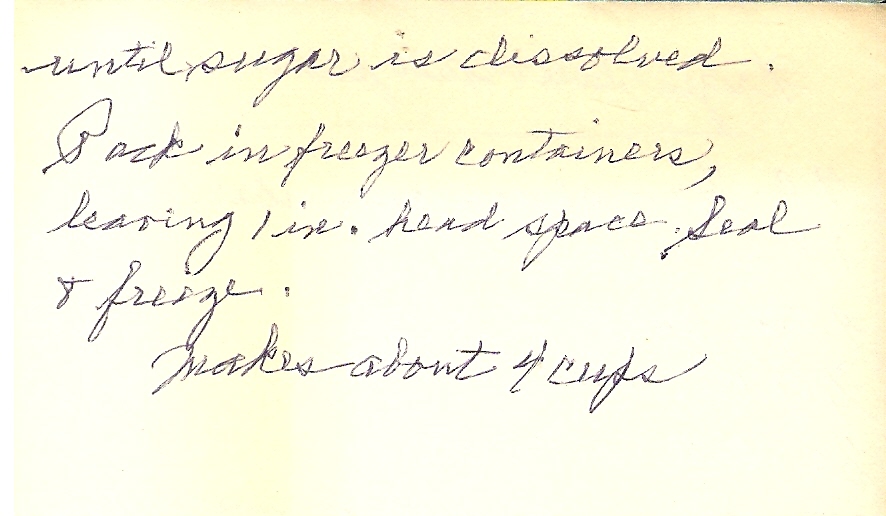 until sugar is dissolved.
Pack in freezer containers,
leaving 1 in. head space. Seal
& freeze.
Makes about 4 cups